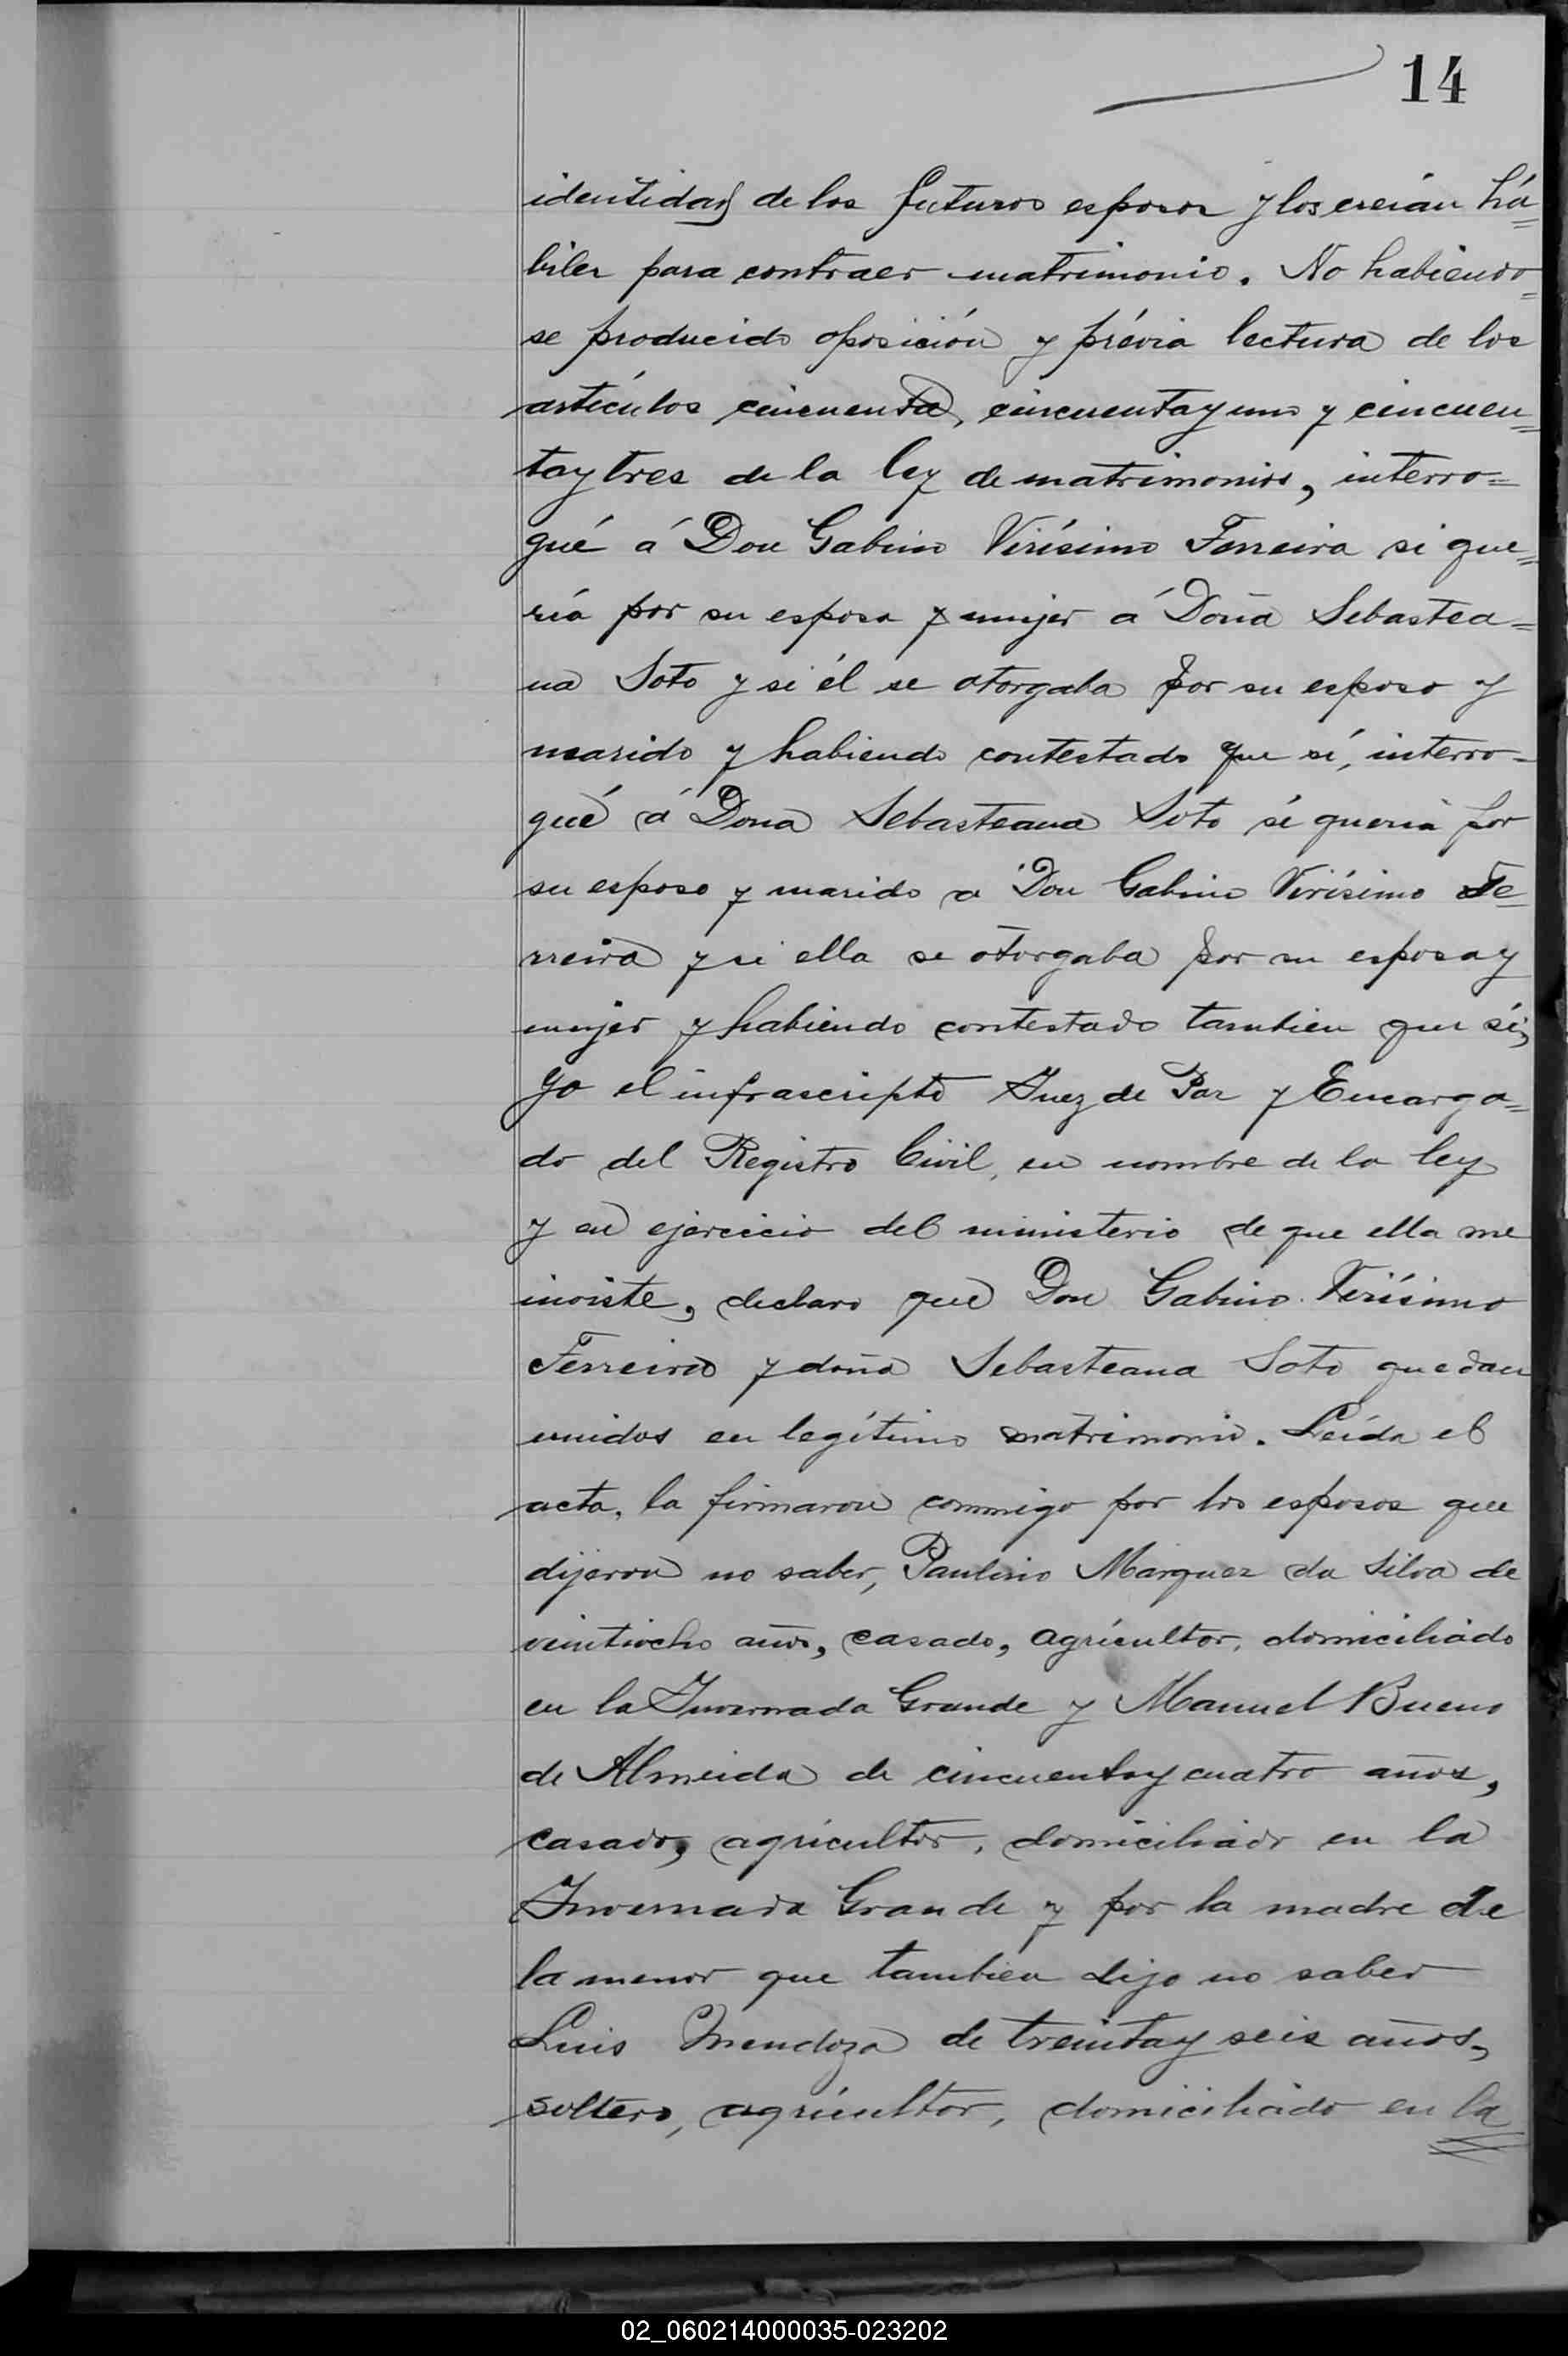 14
identidad de los futuros esposos y los creían há=
biles para contraer matrimonio. No habiendo=
se producido oposición y prévia lectura de los
artículos cincuenta, cincuenta y uno y cincuen=
ta y tres de la ley de matrimonios, interro=
gué á Don Gabino Virísimo Ferreira si que=
ría por su esposa y mujer á Doña Sebastea=
na Soto y si él se otorgaba por su esposo y
marido y habiendo contestado que sí, interro=
gué á Dona Sebasteana Soto si queria por
su esposo y marido a Don Gabino Virísimo Fe=
rreira y si ella se otorgaba por su esposa y
mujer y habiendo contestado tambien que sí;
yo el infrascripto Juez de Paz y Encarga=
do del Registro Civil, en nombre de la ley
y en ejercicio del ministerio de que ella me
inviste, declaro que Don Gabino Virísimo
Ferreira y doña Sebasteana Soto quedan
unidos en legítimo matrimonio. Leída el
acta, la firmaron conmigo por los esposos que
dijeron no saber, Paulino Marquez da Silva de
veintiocho años, casado, agricultor, domiciliado
en la Invernada Grande y Manuel Bueno
de Almeida de cincuenta y cuatro años,
casado, agricultor, domiciliado en la
Invernada Grande y por la madre de
la menor que tambien dijo no saber
Luis Mendoza de treinta y seis años,
soltero, agricultor, domiciliado en la
02_060214000035-023202